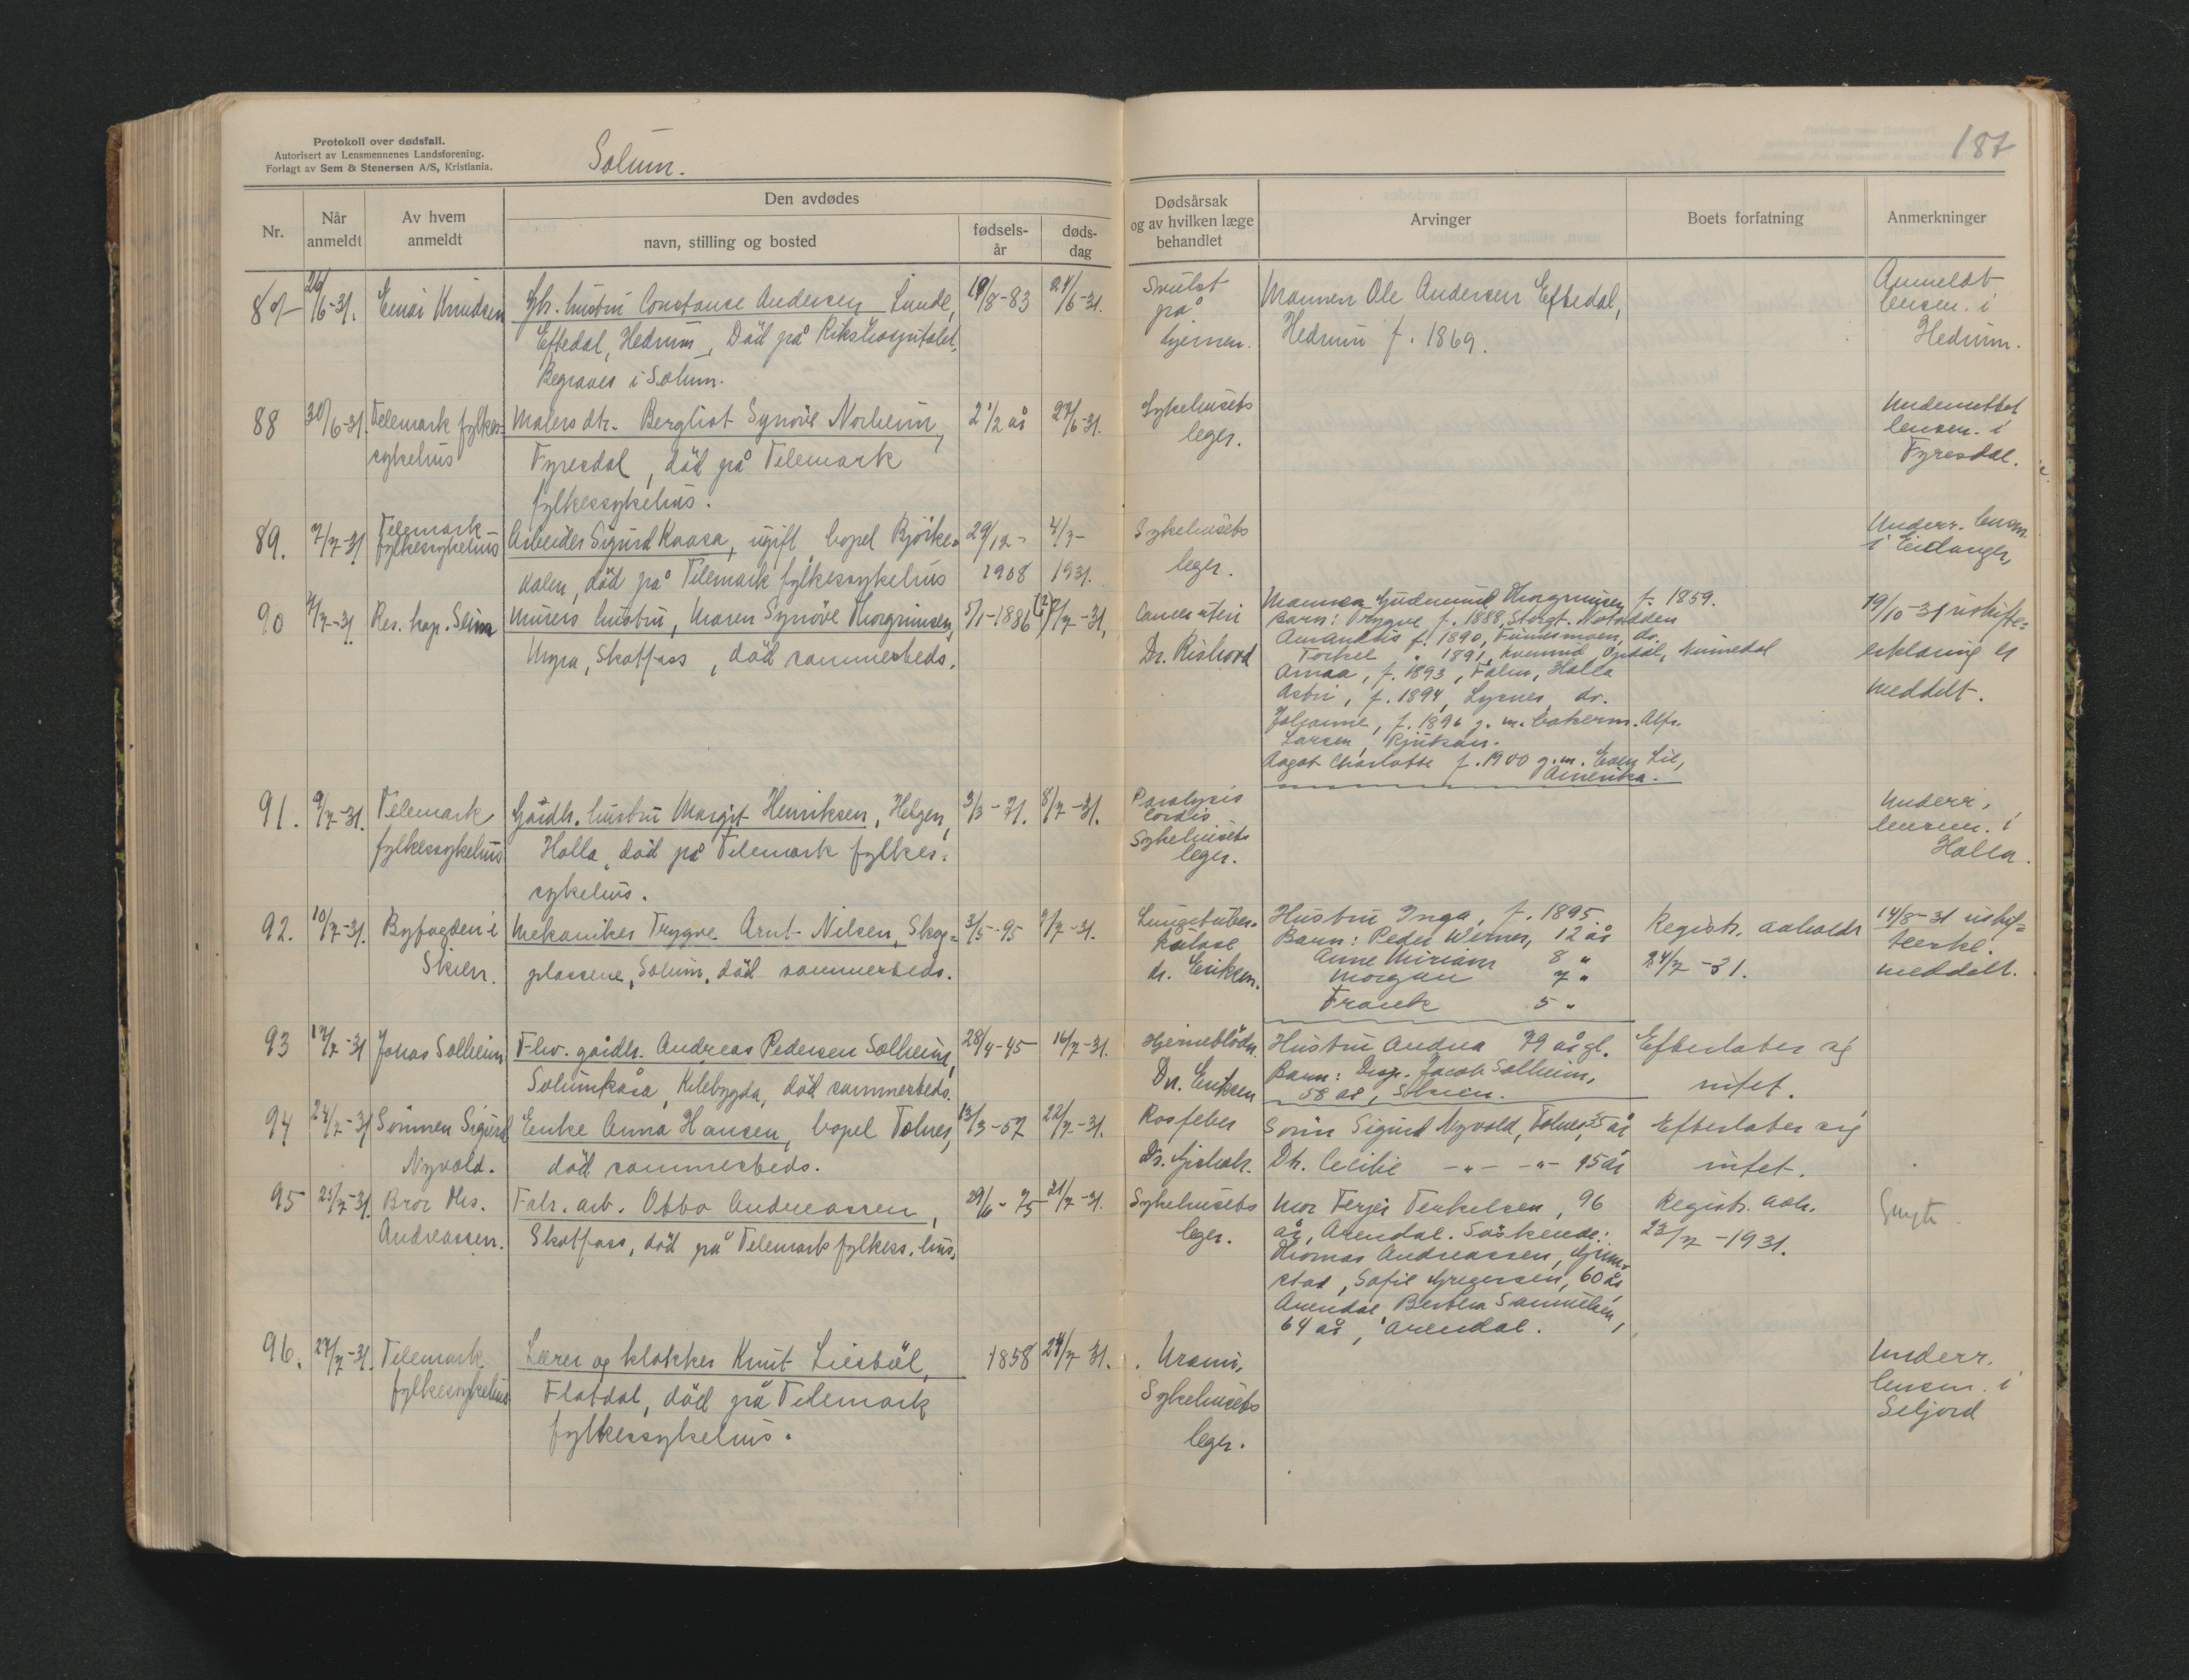 Protokoll over dødsfall.
Autorisert av Lensmennenes Landsforening.
Forlagt av Sem & Stenersen A/S, Kristiania.
Solum.
187
Nr.
Når anmeldt
Av hvem anmeldt
Den avdødes
navn, stilling og bosted
fødsels-år
døds-dag
Dødsårsak og av hvilken læge behandlet
Arvinger
Boets forfatning
Anmerkninger
87 26/6-31. Einar Knudsen Gbr. hustru Constance Andersen Lunde, 19/8-83 24/6-31.
Eftedal, Hedrum, Död på Rikshospitalet,
Begraves i Solum.
Svulst
på
hjernen.
Mannen Ole Andersen Eftedal,
Hedrum f. 1869.
Anmeldt
lensm. i
Hedrum.
88 30/6-31. Telemark fylkes- Malers dtr. Bergliot Synöve Norheim, 2 1/2 år 27/6-31.
sykehus Fyresdal, död på Telemark
fylkessykehus.
Sykehusets
leger.
Underrettet
lensm. i
Fyresdal.
89. 7/7-31 Telemark
fylkessykehus Arbeider Sigurd Kaasa, ugift, bopel Bjørke- 29/12- 4/7-
dalen, död på Telemark fylkessykehus 1908 1931.
Sykehusets
leger.
Underr. lensm.
i Eidanger,
90 7/7-31 Res. kap. Seim Murers hustru, Maren Synöve Thorgrimsen, 5/1-1886 (?) 7/7-31,
Myra, Skotfoss, död sammesteds.
Cancer uteri
Dr. Rishovd
Mannen Gudmund Thorgrimsen f. 1859.
Barn: Trygve f. 1888, Storgt. Notodden
Amandus f. 1890, Tinnesmoen, do.
Torkel " 1891, Opdal, Numedal
Arnaa, f. 1893, Holla
Astri, f. 1894, do.
Johanne, f. 1896 g. m. Alfr.
Larsen, Rjukan.
Aagot Charlotte f. 1900 g. m. Even Lie,
Amerika.
19/10-31 uskifte-
erklæring er
meddelt.
91. 9/7-31. Telemark Gårdbr. hustru Margit Henriksen, Helgen, 3/3-71. 8/7-31.
fylkessykehus Holla, död på Telemark fylkes-
sykehus.
Paralysis
cordis
Sykehusets
leger.
Underr.
lensm. i
Holla.
92. 10/7-31. Byfogden i Mekaniker Trygve Arnt Nilsen, Skog- 3/5-95 9/7-31.
Skien. plassene, Solum, död sammesteds.
Lungetuber-
kulose
dr. Eriksen.
Hustru Inga, f. 1895.
Barn: Peder Werner, 12 år
Anne Miriam 8 "
Morgan 7 "
Frank 5 "
Registr. avholdt
24/7-31.
14/8-31 uskif-
teerkl.
meddelt.
93 17/7-31 Johas Solheim Fhv. gårdbr. Andreas Pedersen Solheim, 28/4-45 16/7-31.
Solumkåsa, Kilebygda, död sammesteds.
Hjerneblödn.
Dr. Eriksen
Hustru Andrea 79 år gl.
Barn: Disp. Jacob Solheim,
58 år, Skien.
Efterlater sig
intet.
94 24/7-31 Sönnen Sigurd Enke Anna Hansen, bopel Tolnes, 13/3-57 22/7-31.
Nyvold. död sammesteds.
Rosfeber
Sönn Sigurd Nyvold, Tolnes, 35 år
Dtr. Cecilie -"- -"- 45 år
Efterlater sig
intet.
95 23/7-31. Bror Ths. Fabr. arb. Otto Andreassen, 29/6-75 21/7-31.
Andreassen. Skotfoss, död på Telemark fylkess. hus.
Sykehusets
leger.
Mor Terjer Terkelsen, 96
år, Arendal. Söskende:
Thomas Andreassen, Grim-
stad, Sofie Gregersen, 60 år
Arendal, Berthea Samuelsen,
64 år, Arendal.
Registr. avh.
23/7-1931.
96. 27/7-31. Telemark Lærer og klokker Knut Liesböl, 1858 24/7-31.
fylkessykehus Flatdal, död på Telemark
fylkessykehus.
Uremi,
Sykehusets
leger.
Underr.
lensm. i
Seljord